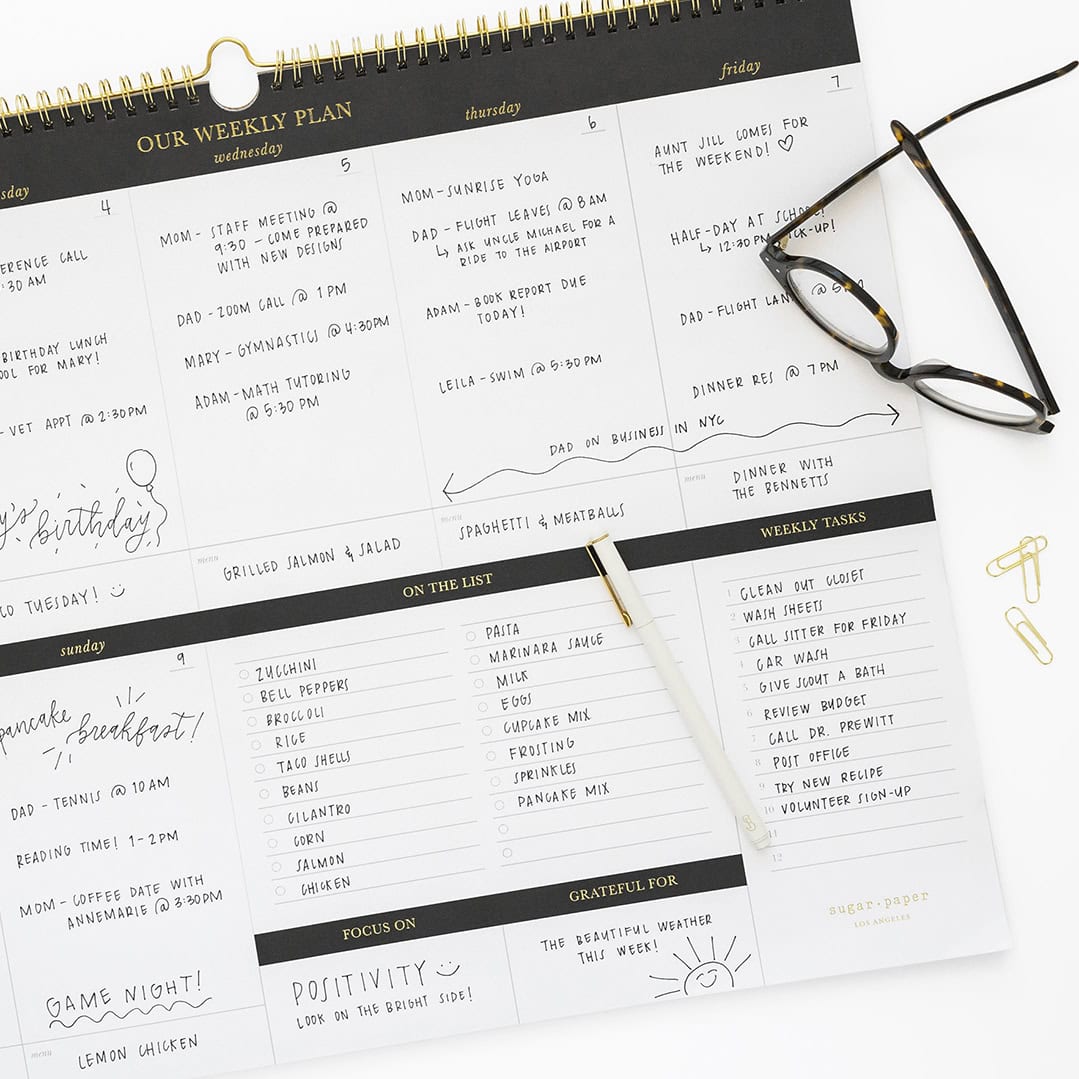 OUR WEEKLY PLAN
sday
4
ERENCE CALL
:30 AM
BIRTHDAY LUNCH
OOL FOR MARY!
- VET APPT @ 2:30PM
y's birthday
CO TUESDAY!
wednesday
5
MOM - STAFF MEETING @
9:30 - COME PREPARED
WITH NEW DESIGNS
DAD - ZOOM CALL @ 1 PM
MARY - GYMNASTICS @ 4:30PM
ADAM - MATH TUTORING
@ 5:30 PM
menu
GRILLED SALMON & SALAD
thursday
6
MOM - SUNRISE YOGA
DAD - FLIGHT LEAVES @ 8 AM
↳ ASK UNCLE MICHAEL FOR A
RIDE TO THE AIRPORT
ADAM - BOOK REPORT DUE
TODAY!
LEILA - SWIM @ 5:30 PM
DAD ON BUSINESS IN NYC
menu
SPAGHETTI & MEATBALLS
friday
7
AUNT JILL COMES FOR
THE WEEKEND! ♡
HALF-DAY AT SCHOOL!
↳ 12:30 PM PICK-UP!
DAD - FLIGHT LAN @ 5
DINNER RES @ 7 PM
menu
DINNER WITH
THE BENNETTS
sunday
9
pancake
breakfast!
DAD - TENNIS @ 10 AM
READING TIME! 1-2PM
MOM - COFFEE DATE WITH
ANNEMARIE @ 3:30PM
GAME NIGHT!
menu
LEMON CHICKEN
ON THE LIST
ZUCCHINI
BELL PEPPERS
BROCCOLI
RICE
TACO SHELLS
BEANS
CILANTRO
CORN
SALMON
CHICKEN
PASTA
MARINARA SAUCE
MILK
EGGS
CUPCAKE MIX
FROSTING
SPRINKLES
PANCAKE MIX
WEEKLY TASKS
1 CLEAN OUT CLOSET
2 WASH SHEETS
3 CALL SITTER FOR FRIDAY
4 CAR WASH
5 GIVE SCOUT A BATH
6 REVIEW BUDGET
7 CALL DR. PREWITT
8 POST OFFICE
9 TRY NEW RECIPE
10 VOLUNTEER SIGN-UP
11
12
FOCUS ON
POSITIVITY
LOOK ON THE BRIGHT SIDE!
GRATEFUL FOR
THE BEAUTIFUL WEATHER
THIS WEEK!
sugar·paper
LOS ANGELES